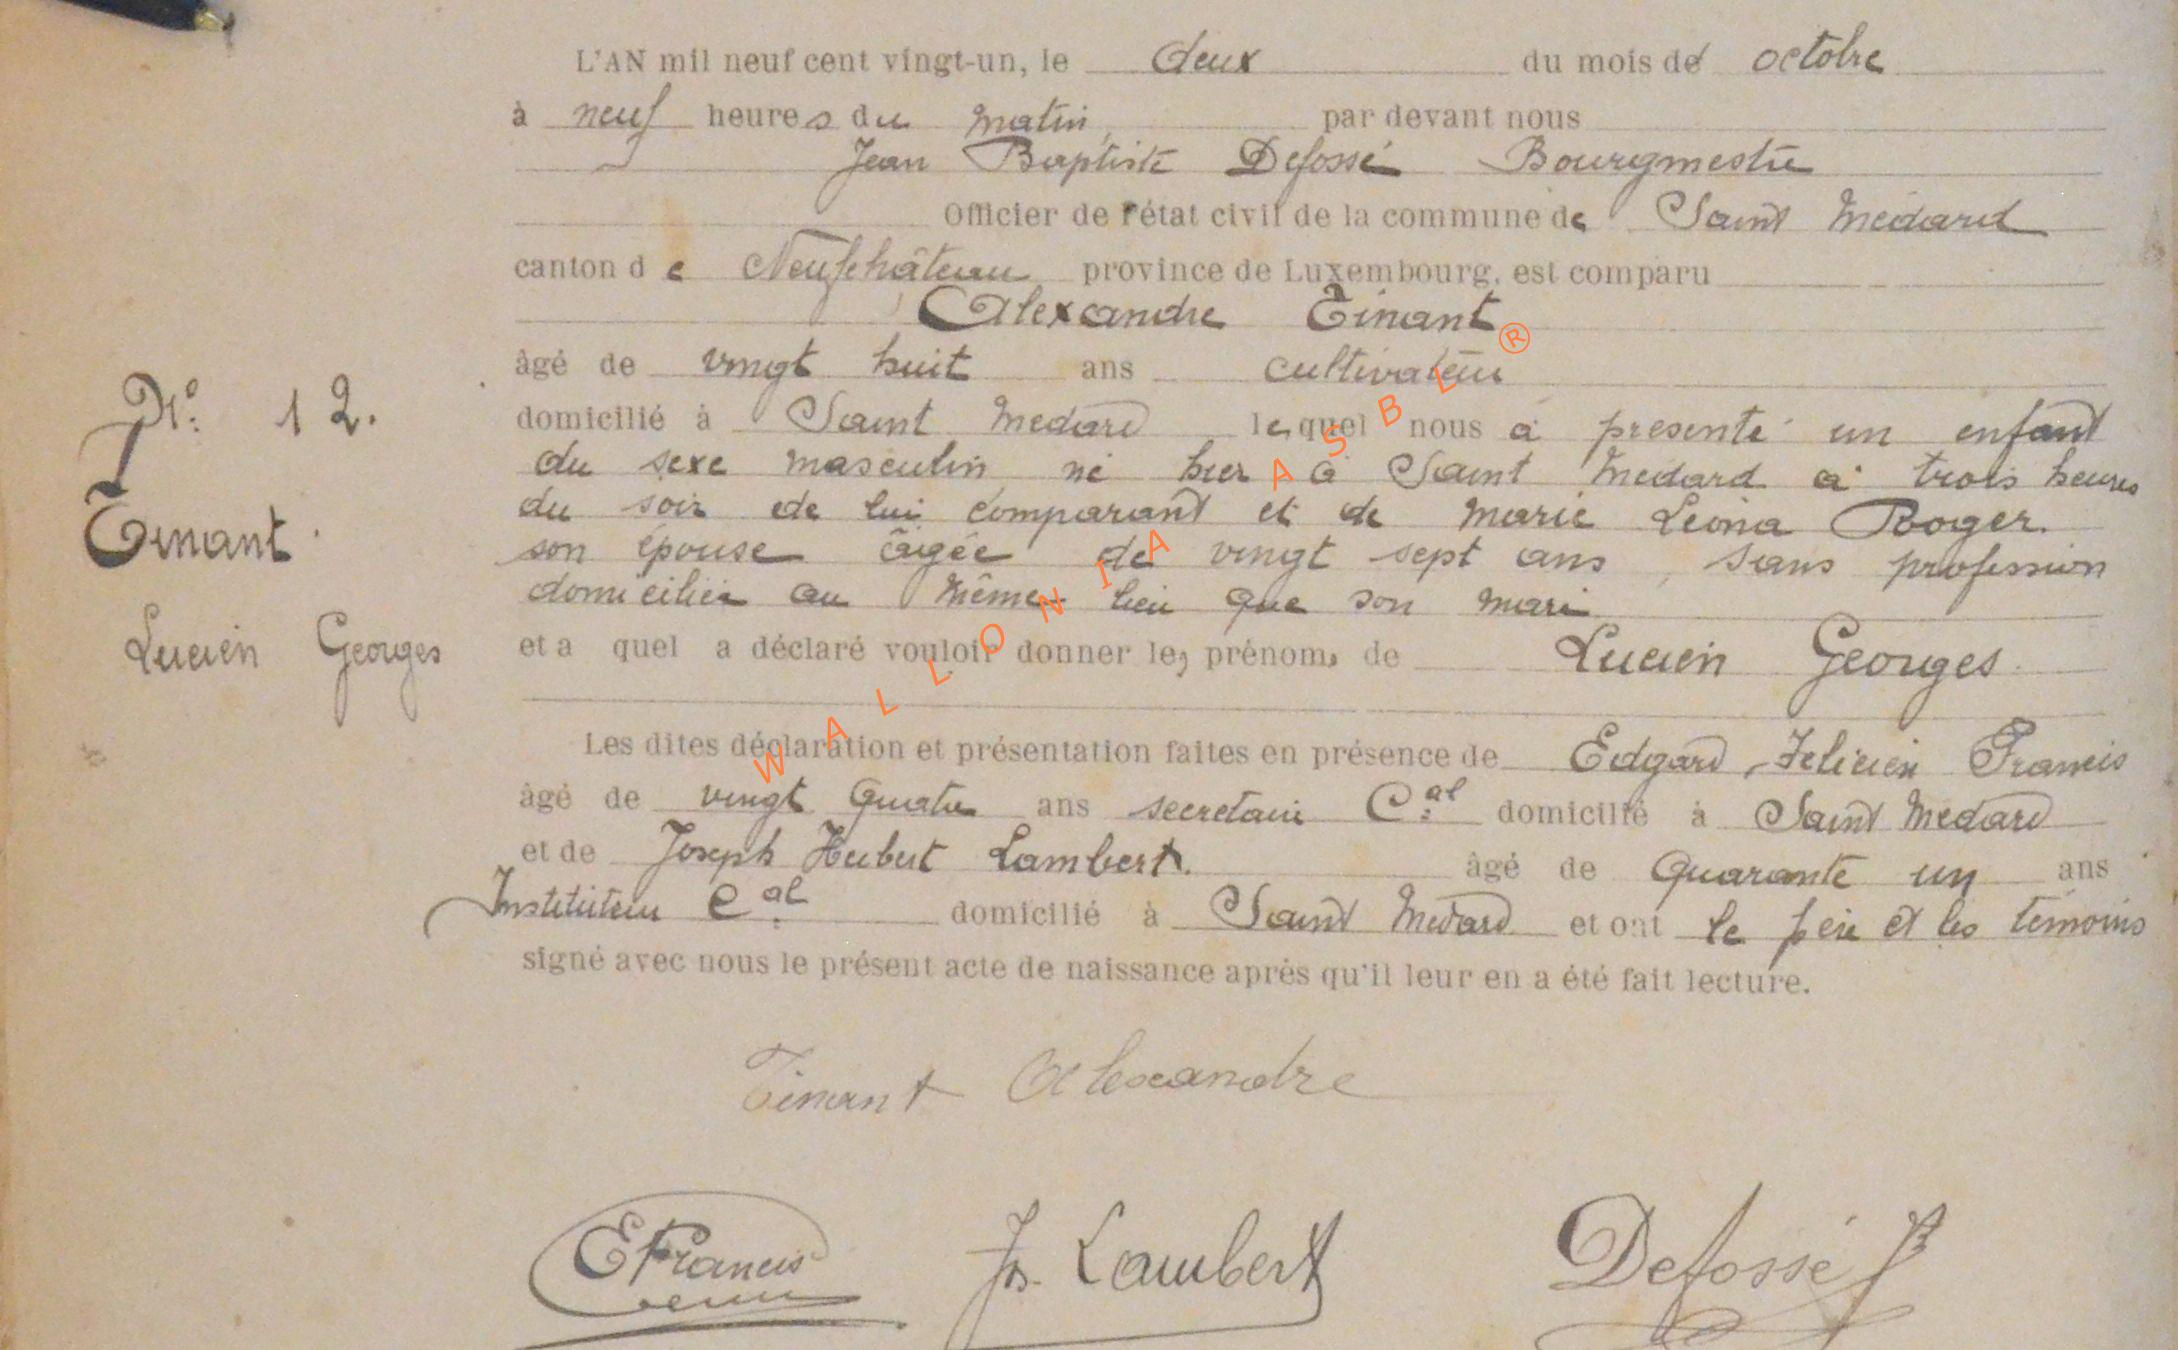 L'AN mil neuf cent vingt-un, le deux du mois de octobre
à neuf heures du matin, par devant nous
Jean Baptiste Defossé Bourgmestre
Officier de l'état civil de la commune de Saint Médard
canton de Neufchâteau province de Luxembourg, est comparu
Alexandre Tinant
âgé de vingt huit ans cultivateur
N° 12.
domicilié à Saint Médard lequel nous a présenté un enfant
du sexe masculin né hier à Saint Médard à trois heures
du soir de lui comparant et de Marie Léona Roger
Tinant
son épouse âgée de vingt sept ans, sans profession
domiciliée au même lieu que son mari
et a quel a déclaré vouloir donner les prénoms de Lucien Georges
Lucien Georges
Les dites déclaration et présentation faites en présence de Edgard, Félicien Francis
âgé de vingt quatre ans secrétaire Cal domicilié à Saint Médard
et de Joseph Hubert Lambert. âgé de quarante un ans
Instituteur Cal domicilié à Saint Médard et ont le père et les témoins
signé avec nous le présent acte de naissance après qu'il leur en a été fait lecture.
Tinant Alexandre
EFrancis Js. Lambert Defossé JB
WALLONIA ASBL ®